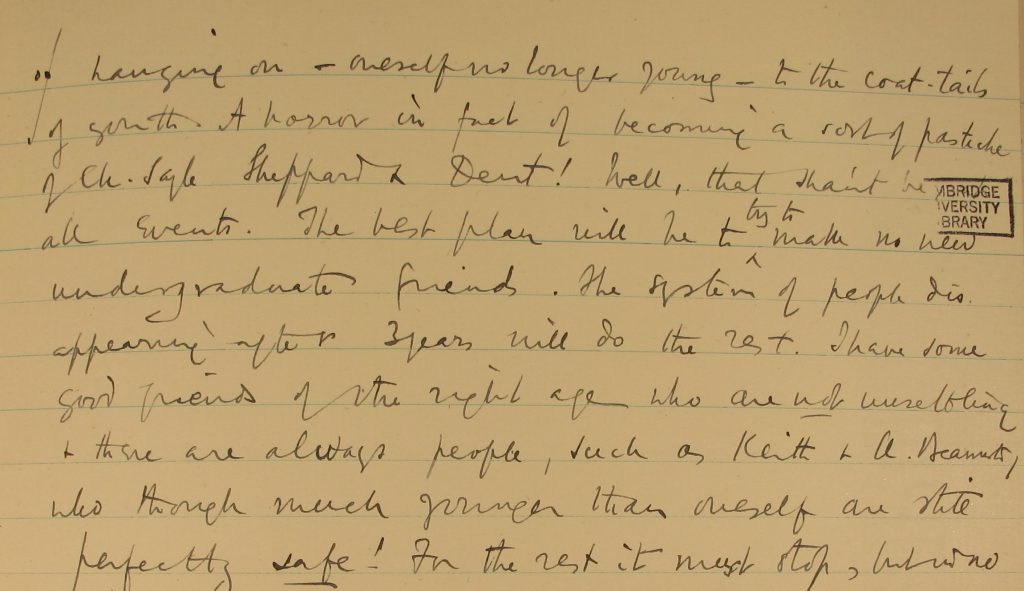 of hanging on – oneself no longer young – to the coat-tails
of youth. A horror in fact of becoming a sort of pastiche
of Ch. Sayle Sheppard & Dent! Well, that shan't be
MBRIDGE
VERSITY
BRARY
all events. The best plan will be to try to make no new
undergraduate friends. The system of people dis-
appearing after 3 years will do the rest. I have some
good friends of the right age who are not unsettling
& there are always people, such as Keith & A. 
who though much younger than oneself are
perfectly safe! For the rest it must stop, but no